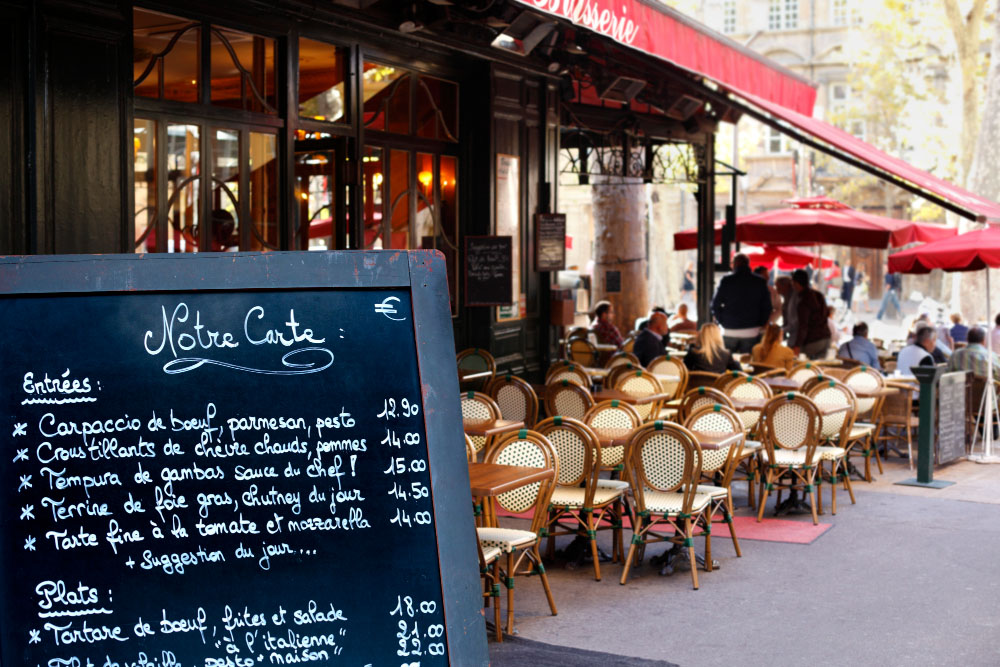 Brasserie
Notre Carte : €
Entrées :
* Carpaccio de boeuf, parmesan, pesto 12.90
* Croustillants de chèvre chauds, pommes 14.00
* Tempura de gambas sauce du chef ! 15.00
* Terrine de foie gras, chutney du jour 14.50
* Tarte fine à la tomate et mozzarella 14.00
+ Suggestion du jour ...
Plats :
* Tartare de boeuf, frites et salade 18.00
"à l'italienne" 21.00
pesto "maison" 22.00